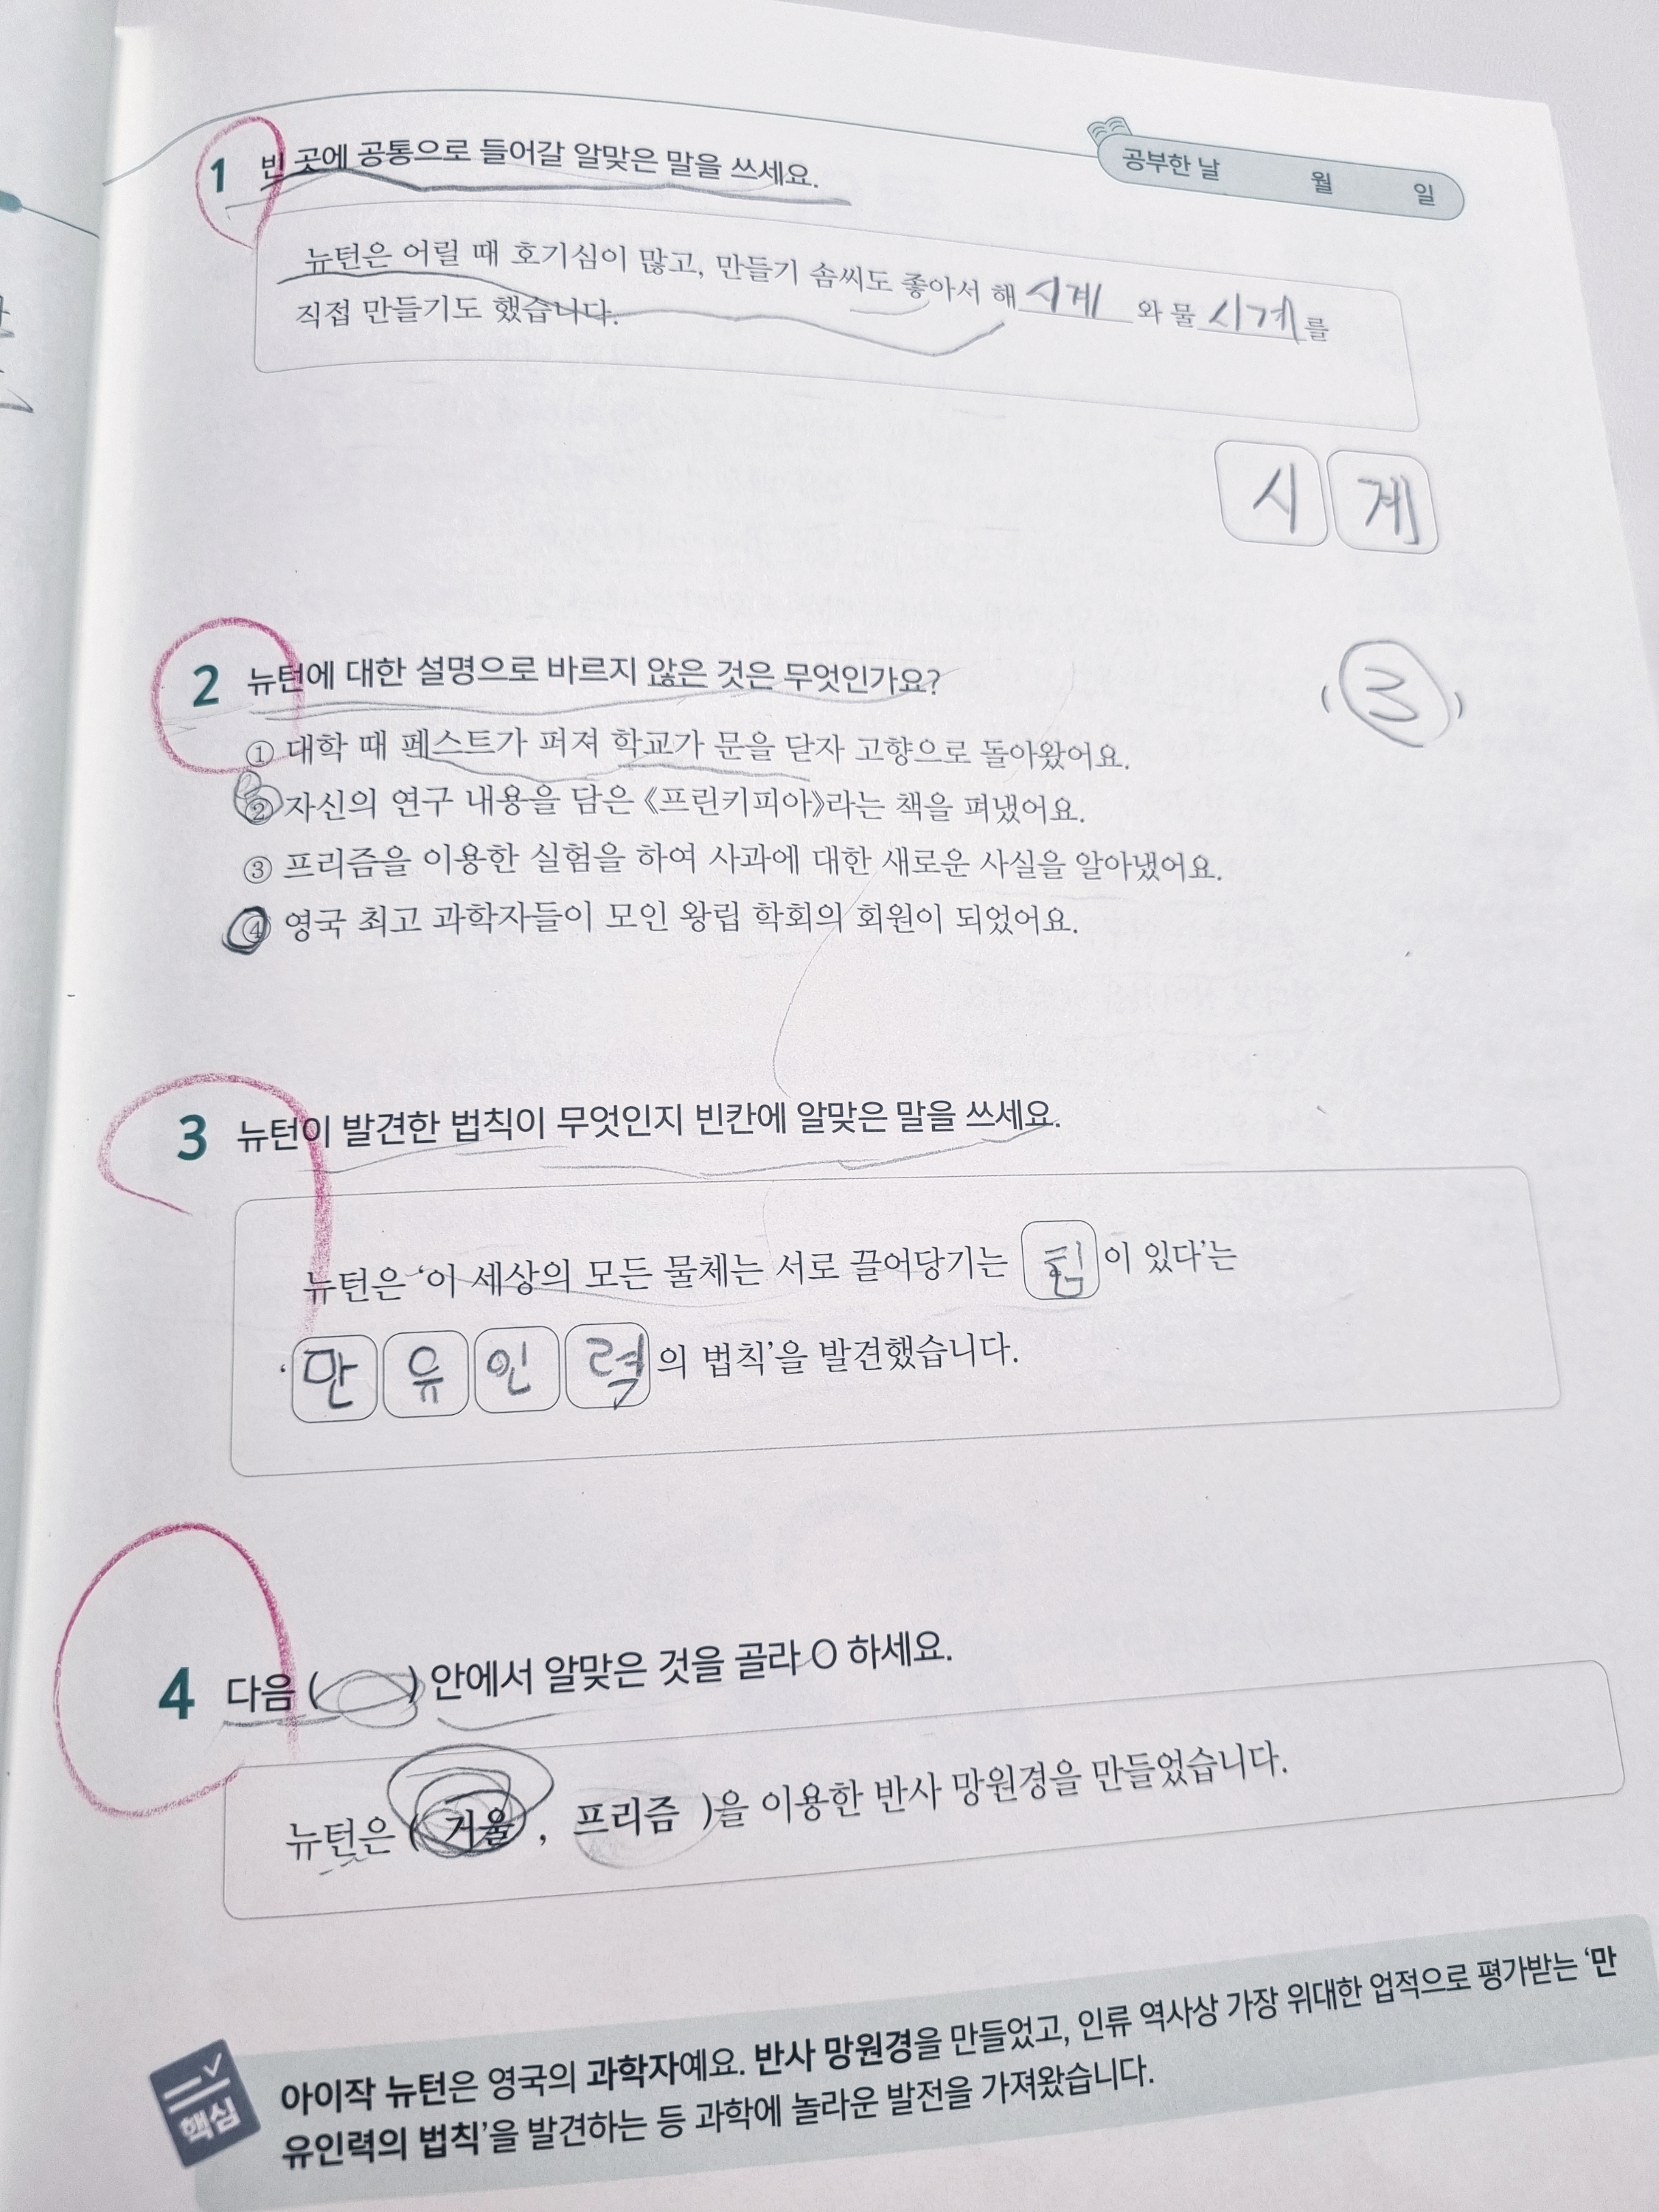 공부한 날 월 일
1 빈 곳에 공통으로 들어갈 알맞은 말을 쓰세요.
뉴턴은 어릴 때 호기심이 많고, 만들기 솜씨도 좋아서 해 시계 와 물 시계를
직접 만들기도 했습니다.
시 계
2 뉴턴에 대한 설명으로 바르지 않은 것은 무엇인가요? ( 3 )
① 대학 때 페스트가 퍼져 학교가 문을 닫자 고향으로 돌아왔어요.
② 자신의 연구 내용을 담은 《프린키피아》라는 책을 펴냈어요.
③ 프리즘을 이용한 실험을 하여 사과에 대한 새로운 사실을 알아냈어요.
④ 영국 최고 과학자들이 모인 왕립 학회의 회원이 되었어요.
3 뉴턴이 발견한 법칙이 무엇인지 빈칸에 알맞은 말을 쓰세요.
뉴턴은 ‘이 세상의 모든 물체는 서로 끌어당기는 힘 이 있다’는
‘만 유 인 력 의 법칙’을 발견했습니다.
4 다음 ( ) 안에서 알맞은 것을 골라 O 하세요.
뉴턴은 ( 거울 , 프리즘 )을 이용한 반사 망원경을 만들었습니다.
핵심
아이작 뉴턴은 영국의 과학자예요. 반사 망원경을 만들었고, 인류 역사상 가장 위대한 업적으로 평가받는 ‘만
유인력의 법칙’을 발견하는 등 과학에 놀라운 발전을 가져왔습니다.